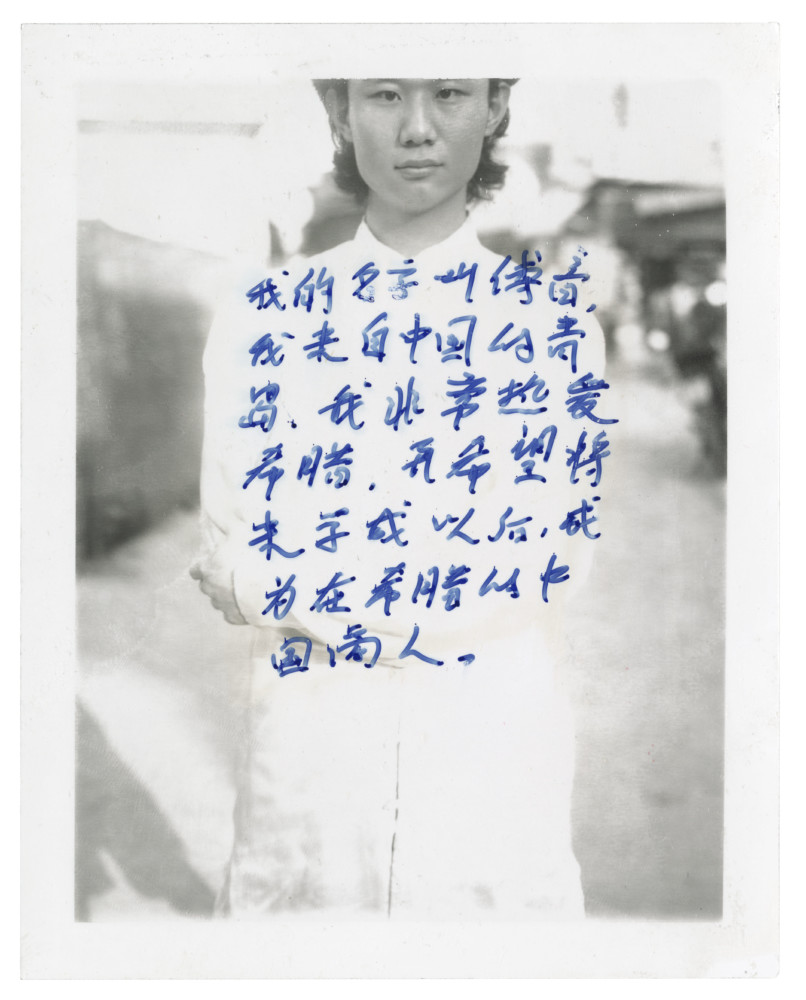 我的名字叫傅音,
我来自中国的青
岛.我非常热爱
希腊.并希望将
来学成以后,成
为在希腊的中
国商人。